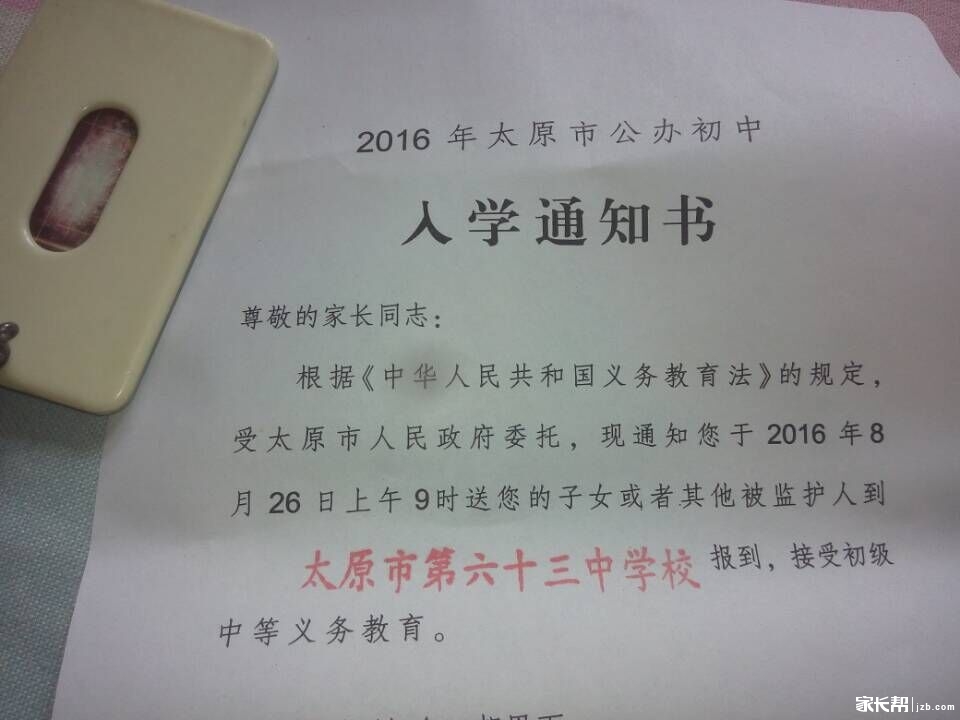 2016年太原市公办初中
入学通知书
尊敬的家长同志：
根据《中华人民共和国义务教育法》的规定，
受太原市人民政府委托，现通知您于2016年8
月26日上午9时送您的子女或者其他被监护人到
太原市第六十三中学校报到，接受初级
中等义务教育。
家长帮|jzb.com